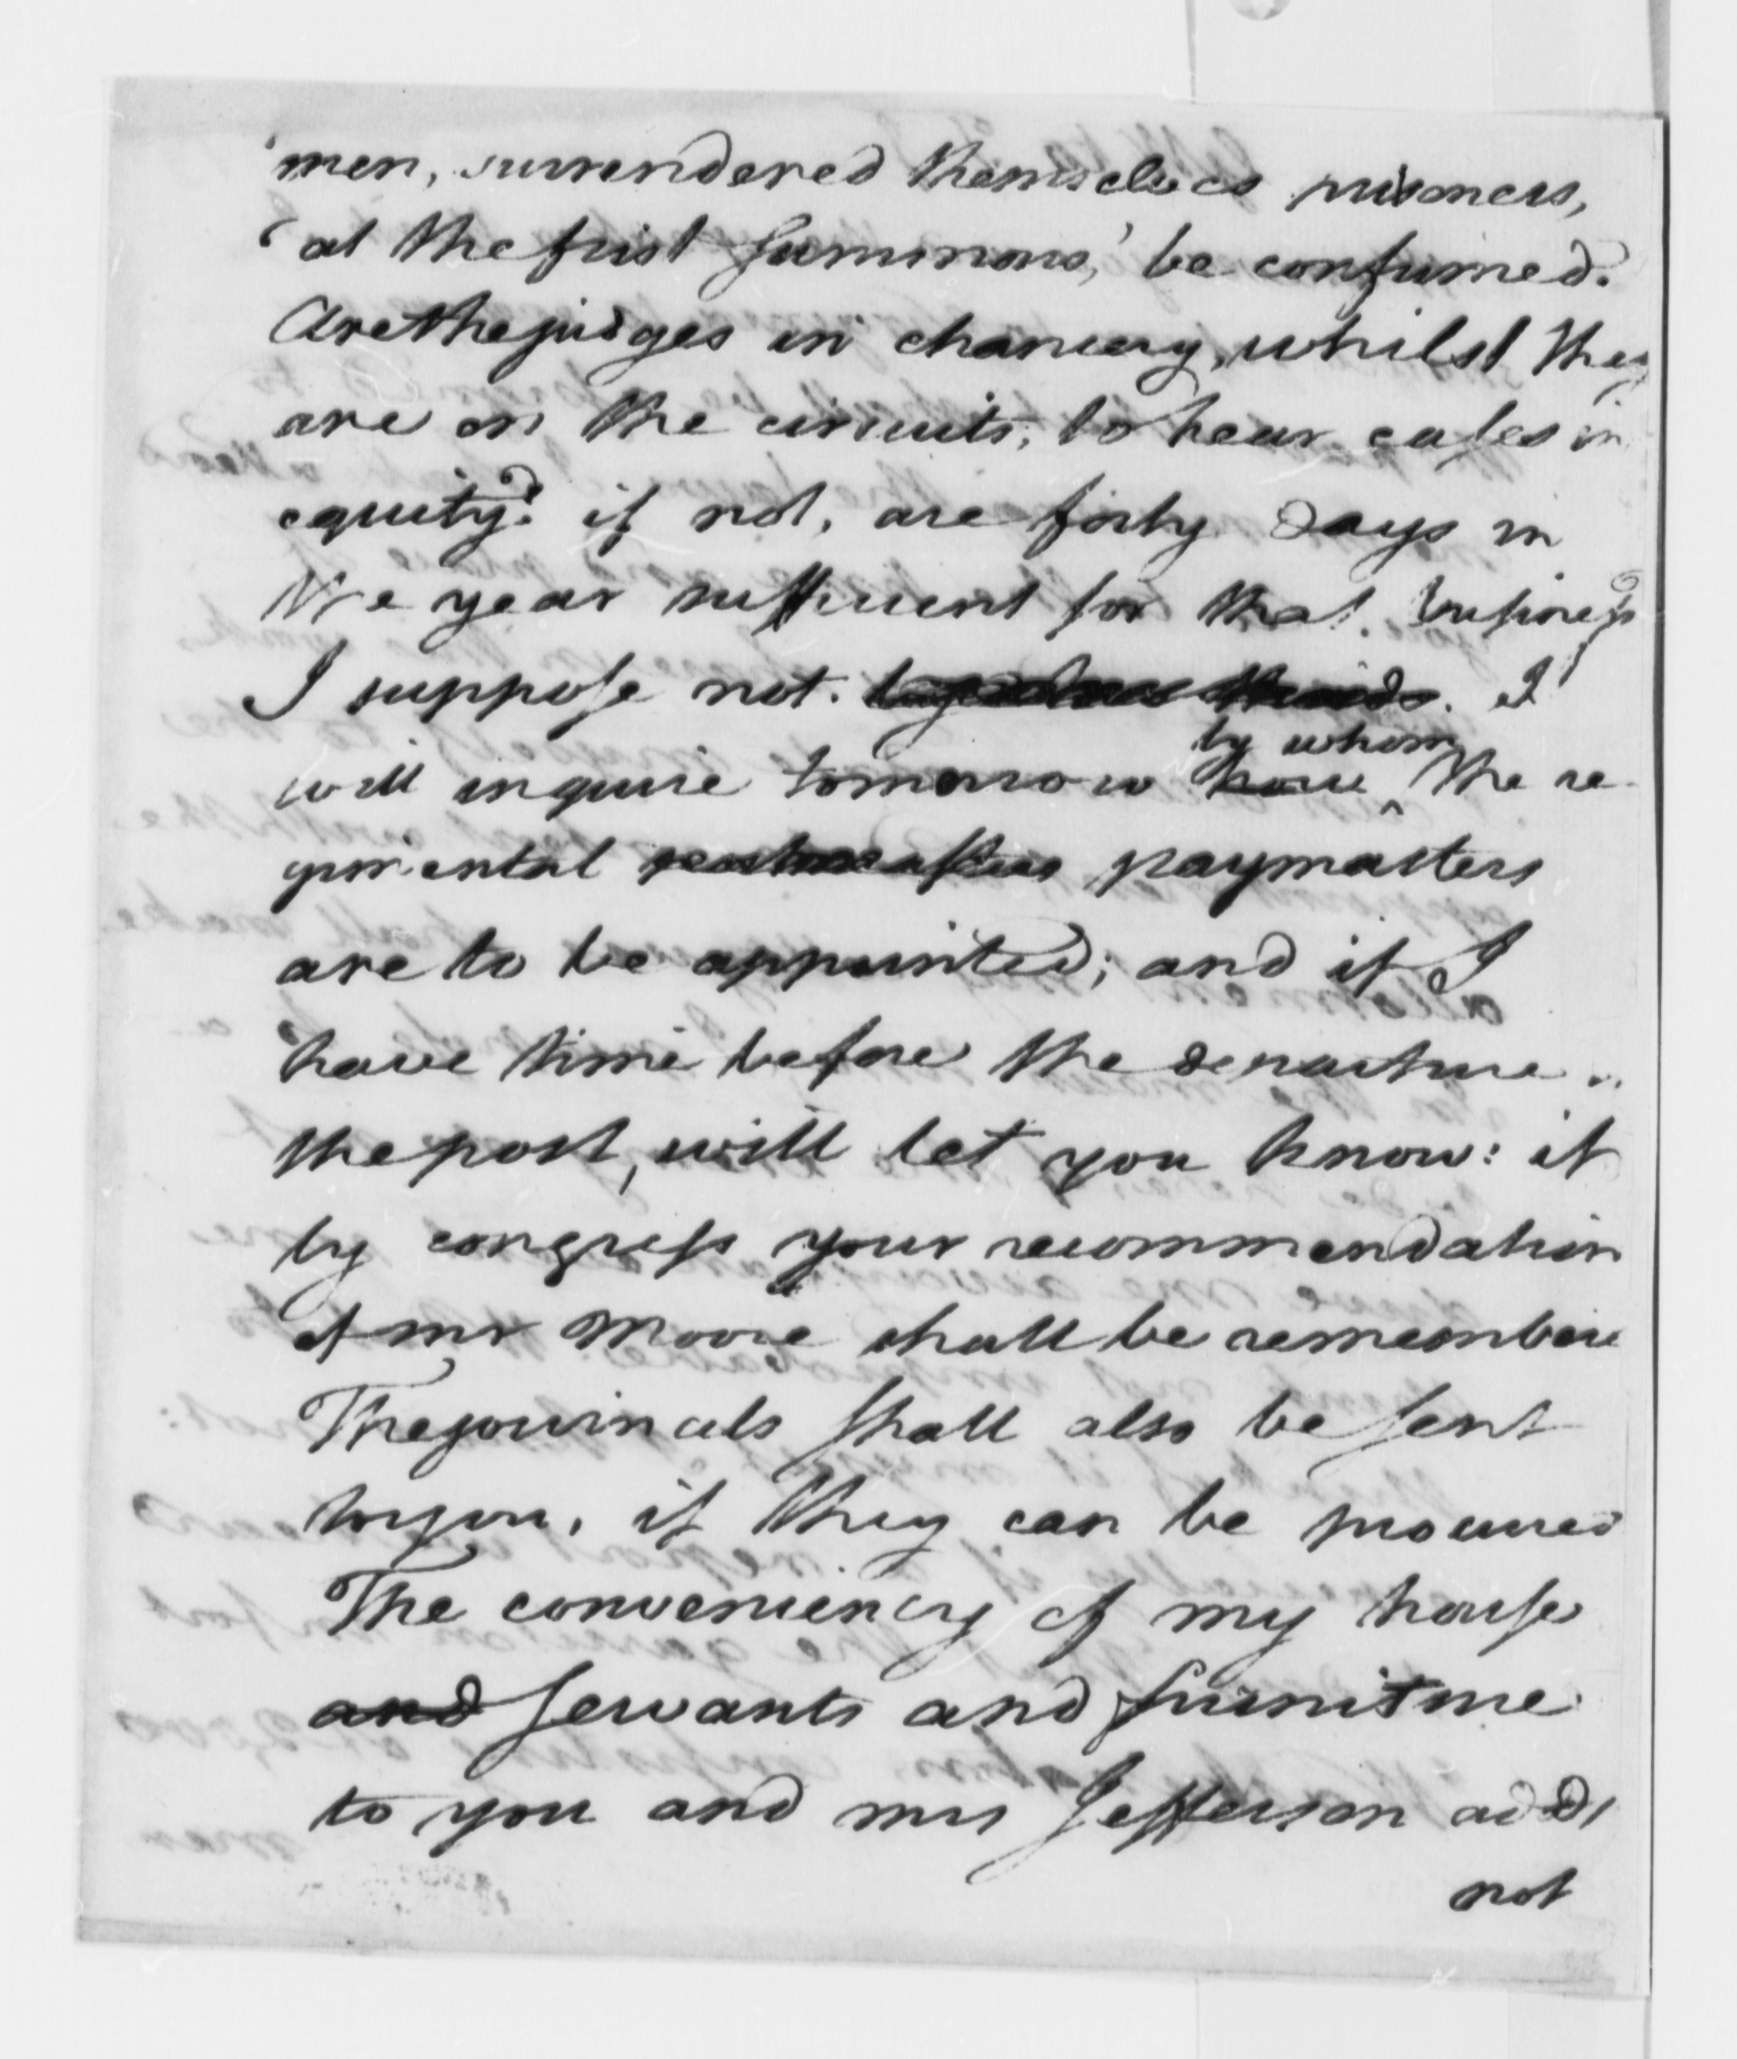 'men, surrendered themselves prisoners,
'at the first summons,' be confirmed.
Are the judges in chancery, whilst they
are on the circuits, to hear cases in
equity? if not, are forty days in
the year sufficient for that business?
I suppose not. I
will inquire tomorrow how by whom the re
gimental paymasters
are to be appointed; and if I
have time before the departure
the post, will let you know: if
by congress your recommendation
of mr Moore shall be remembere
The journals shall also be sent
to you, if they can be procured
The conveniency of my house
and servants and furniture
to you and mrs Jefferson adds
not